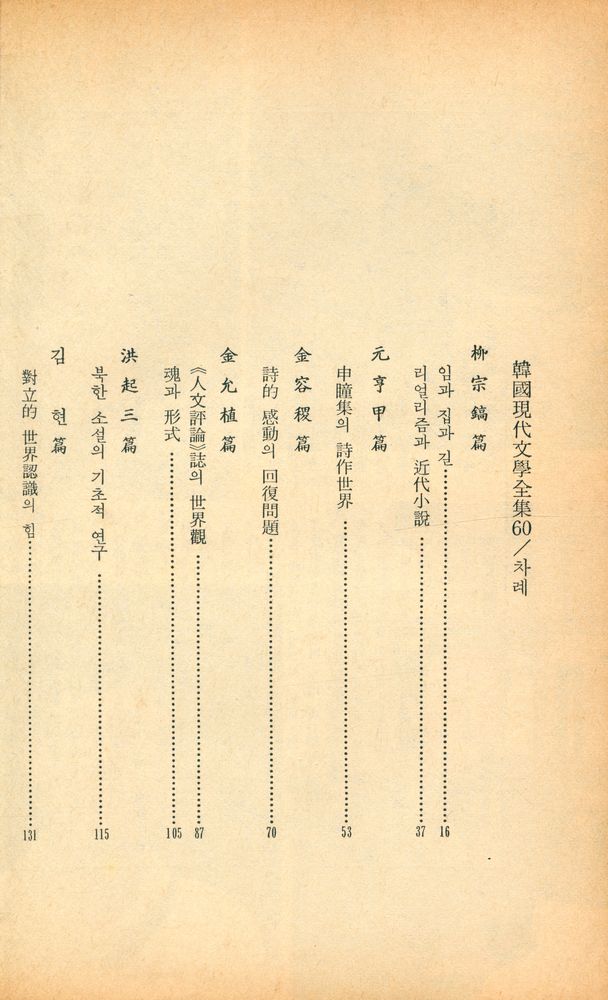 韓國現代文學全集60／차례
柳宗鎬篇
임과 집과 길……16
리얼리즘과 近代小說……37
元亨甲篇
申瞳集의 詩作世界……53
金容稷篇
詩的 感動의 回復問題……70
金允植篇
《人文評論》誌의 世界觀……87
魂과 形式……105
洪起三篇
북한 소설의 기초적 연구……115
김 현篇
對立的 世界認識의 힘……131